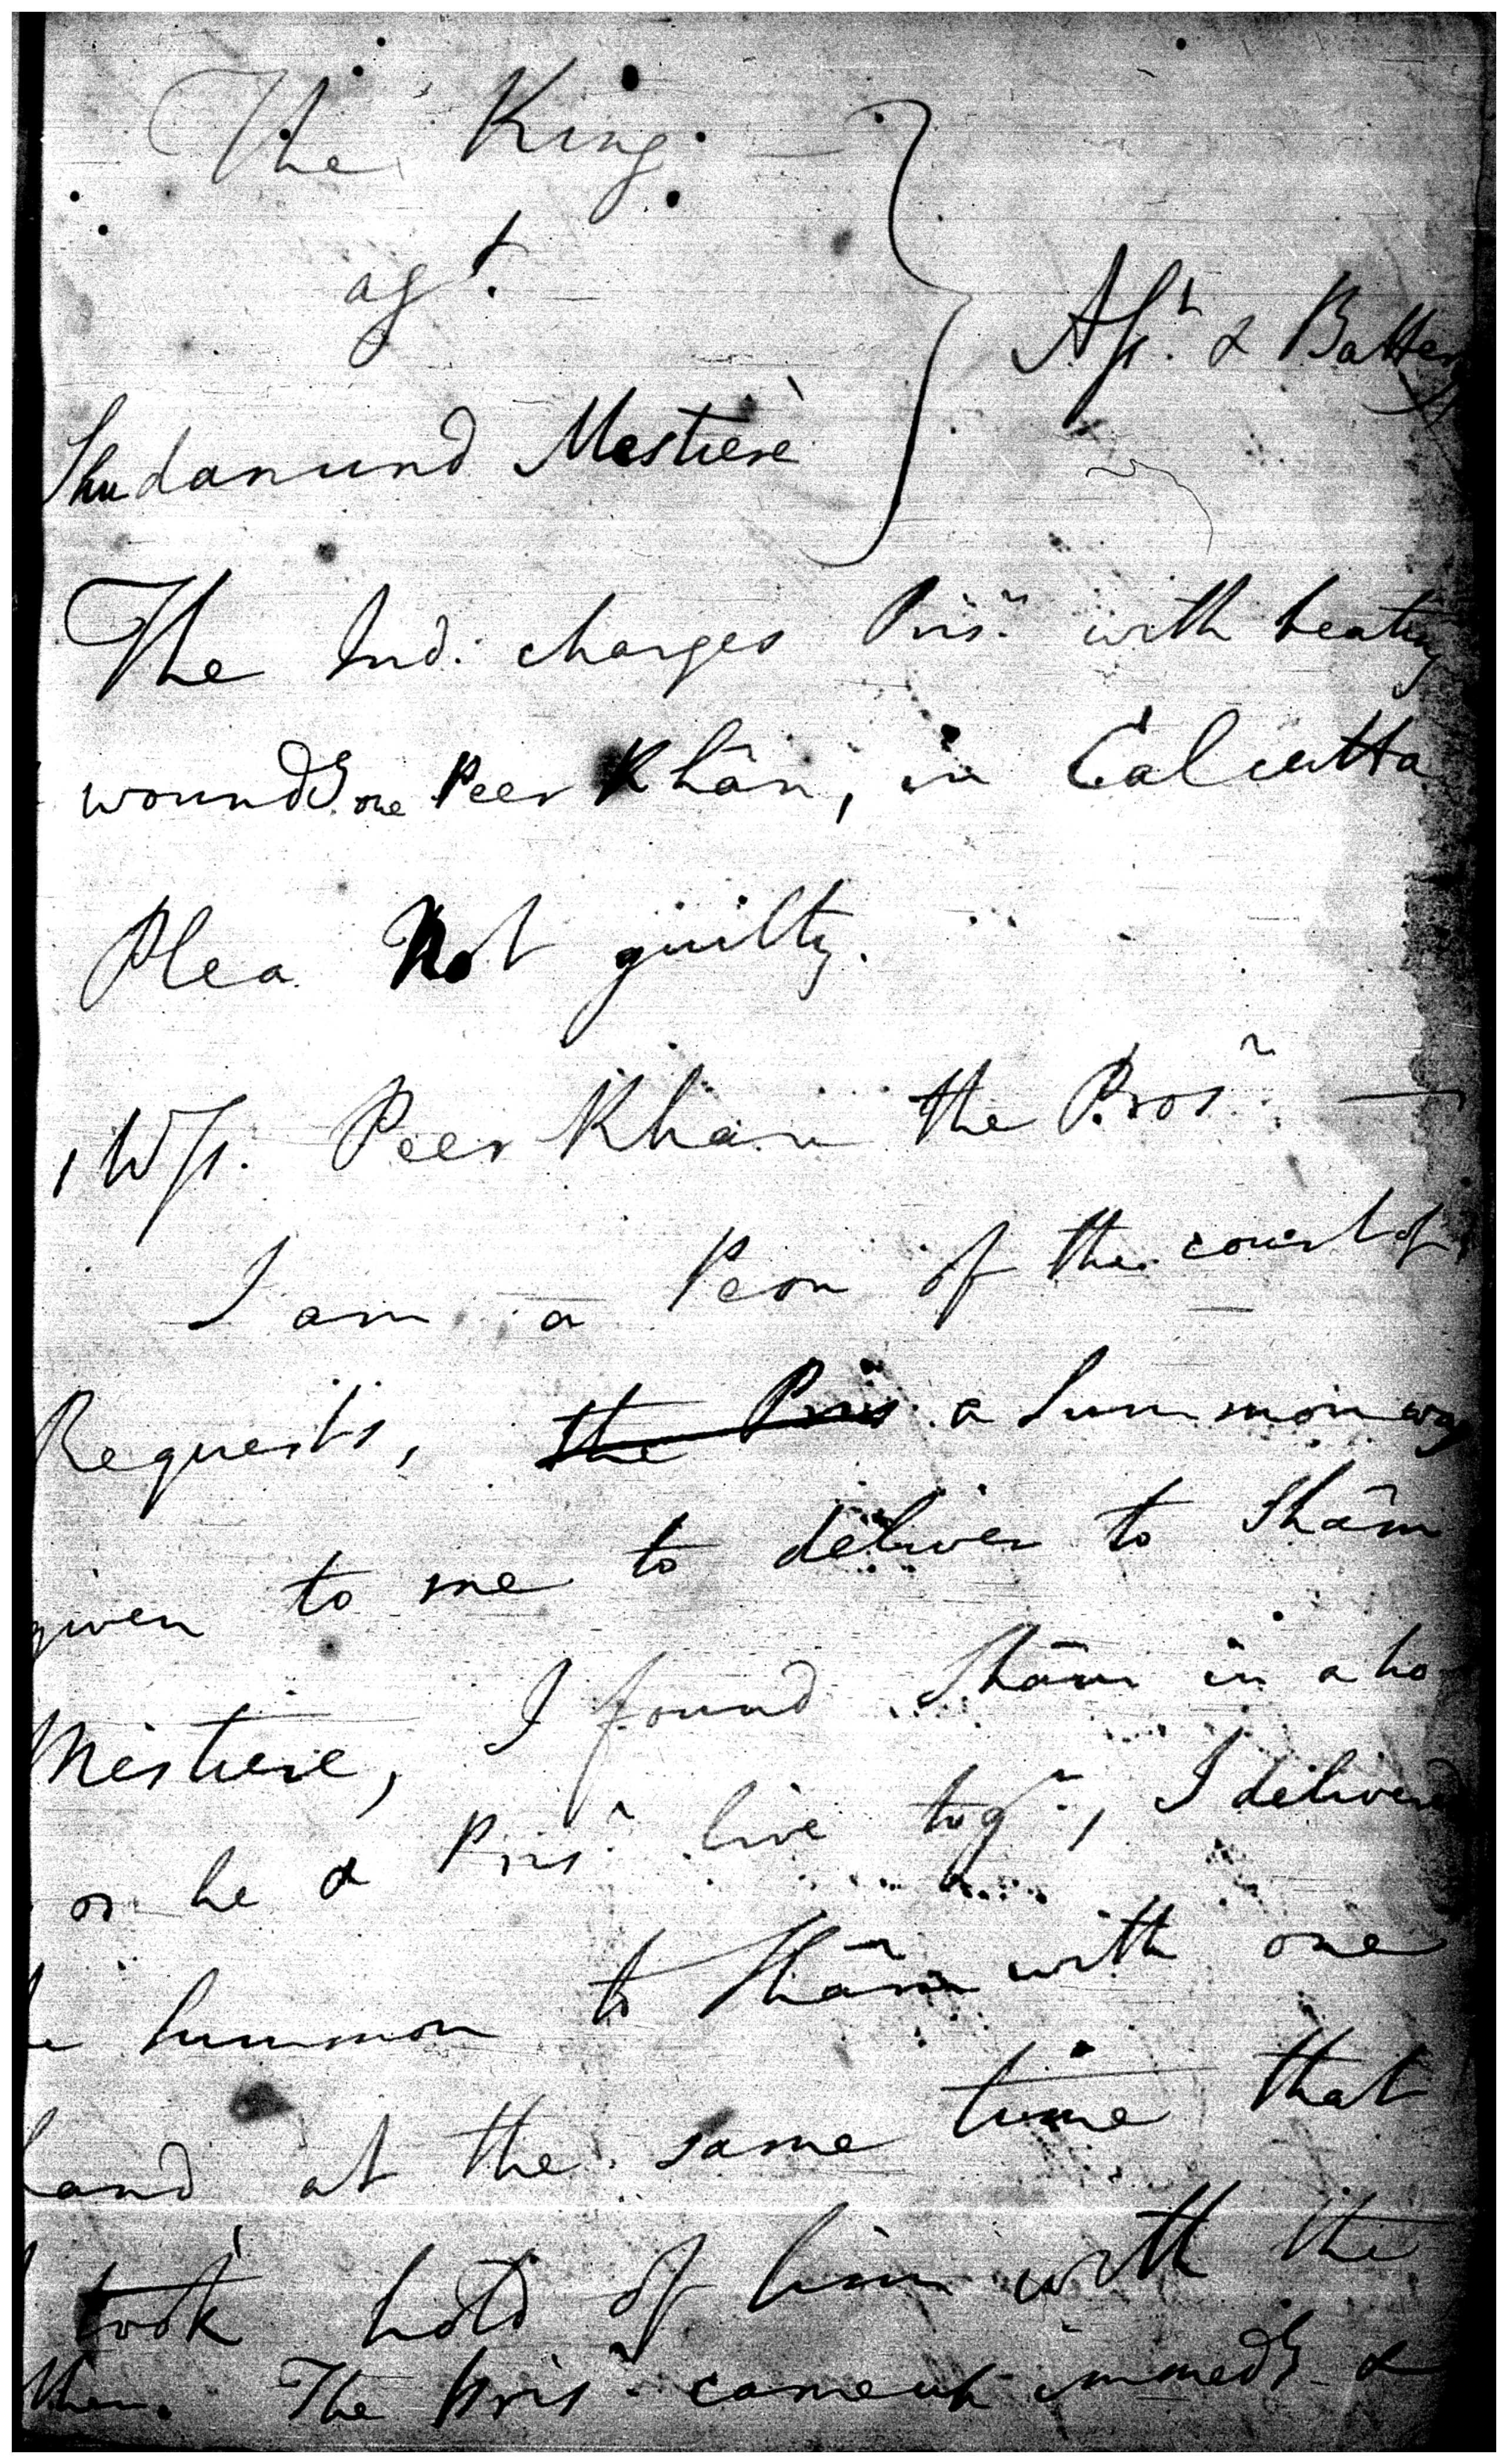 The King
agt.
Asst. & Battery
Shudanund Mestiere
The Ind. charges Prisr. with beating
woundg one Peer Khân, in Calcutta
Plea Not guilty.
1 Wss. Peer Khan the Prosr. —
I am a Peon of the court of
Requests, the Pris a Summon was
given to me to deliver to Shâm
Mestiere, I found Shâm in a ho
or he & Prisr. live togr., I delivered
summon to Shâm with one
hand at the same time that
took hold of him with the
ther. The prisr. came up immedy &